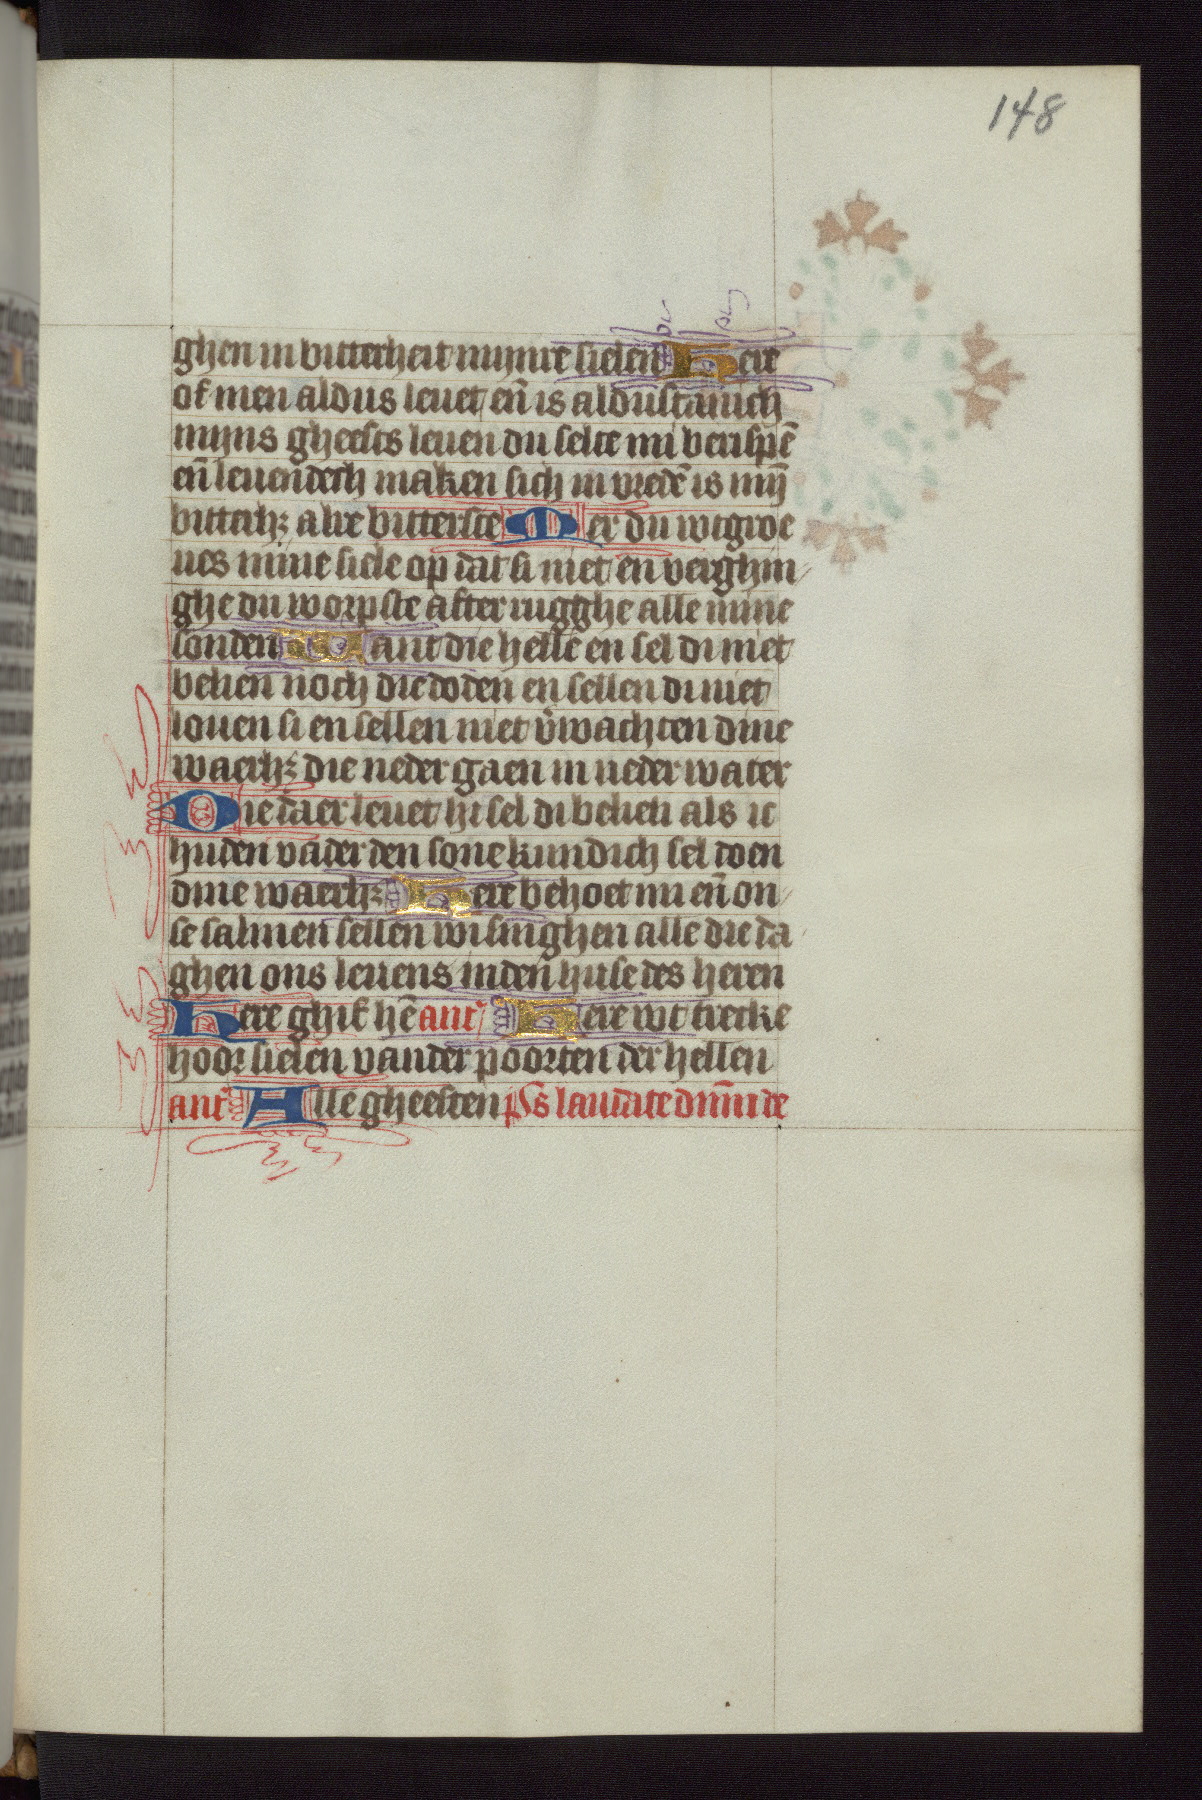 148
ghen in bitterheit mynre sielen Here
of men aldus leuet en̄ is aldustanich
myns gheests leuen du selte mi berispē
en̄ leuendech maken sich in vredē is mȳ
bitterhꝫ alre bitterste Mer du wtgroe
ues mine siele op dat si niet en verghin
ghe du worpste after rugghe alle mine
sonden Want die helle en sel di niet
belien noch die doden en sellen di niet
louen si en sellen niet v̄wachten dine
waerhꝫ die neder gaen in neder water
Die daer leuet hi sel di belien als ic
huden vader den sone kundich sel doen
dine waerhꝫ Here behoet mi en̄ on
se salmen sellen wi singhen alle die da
ghen ons leuens inden huse des heren
Here ghif hē ant' Here wt trecke
hoor sielen vander poorten der hellen
ant' Alle gheesten p̄s laudate dn̄m de